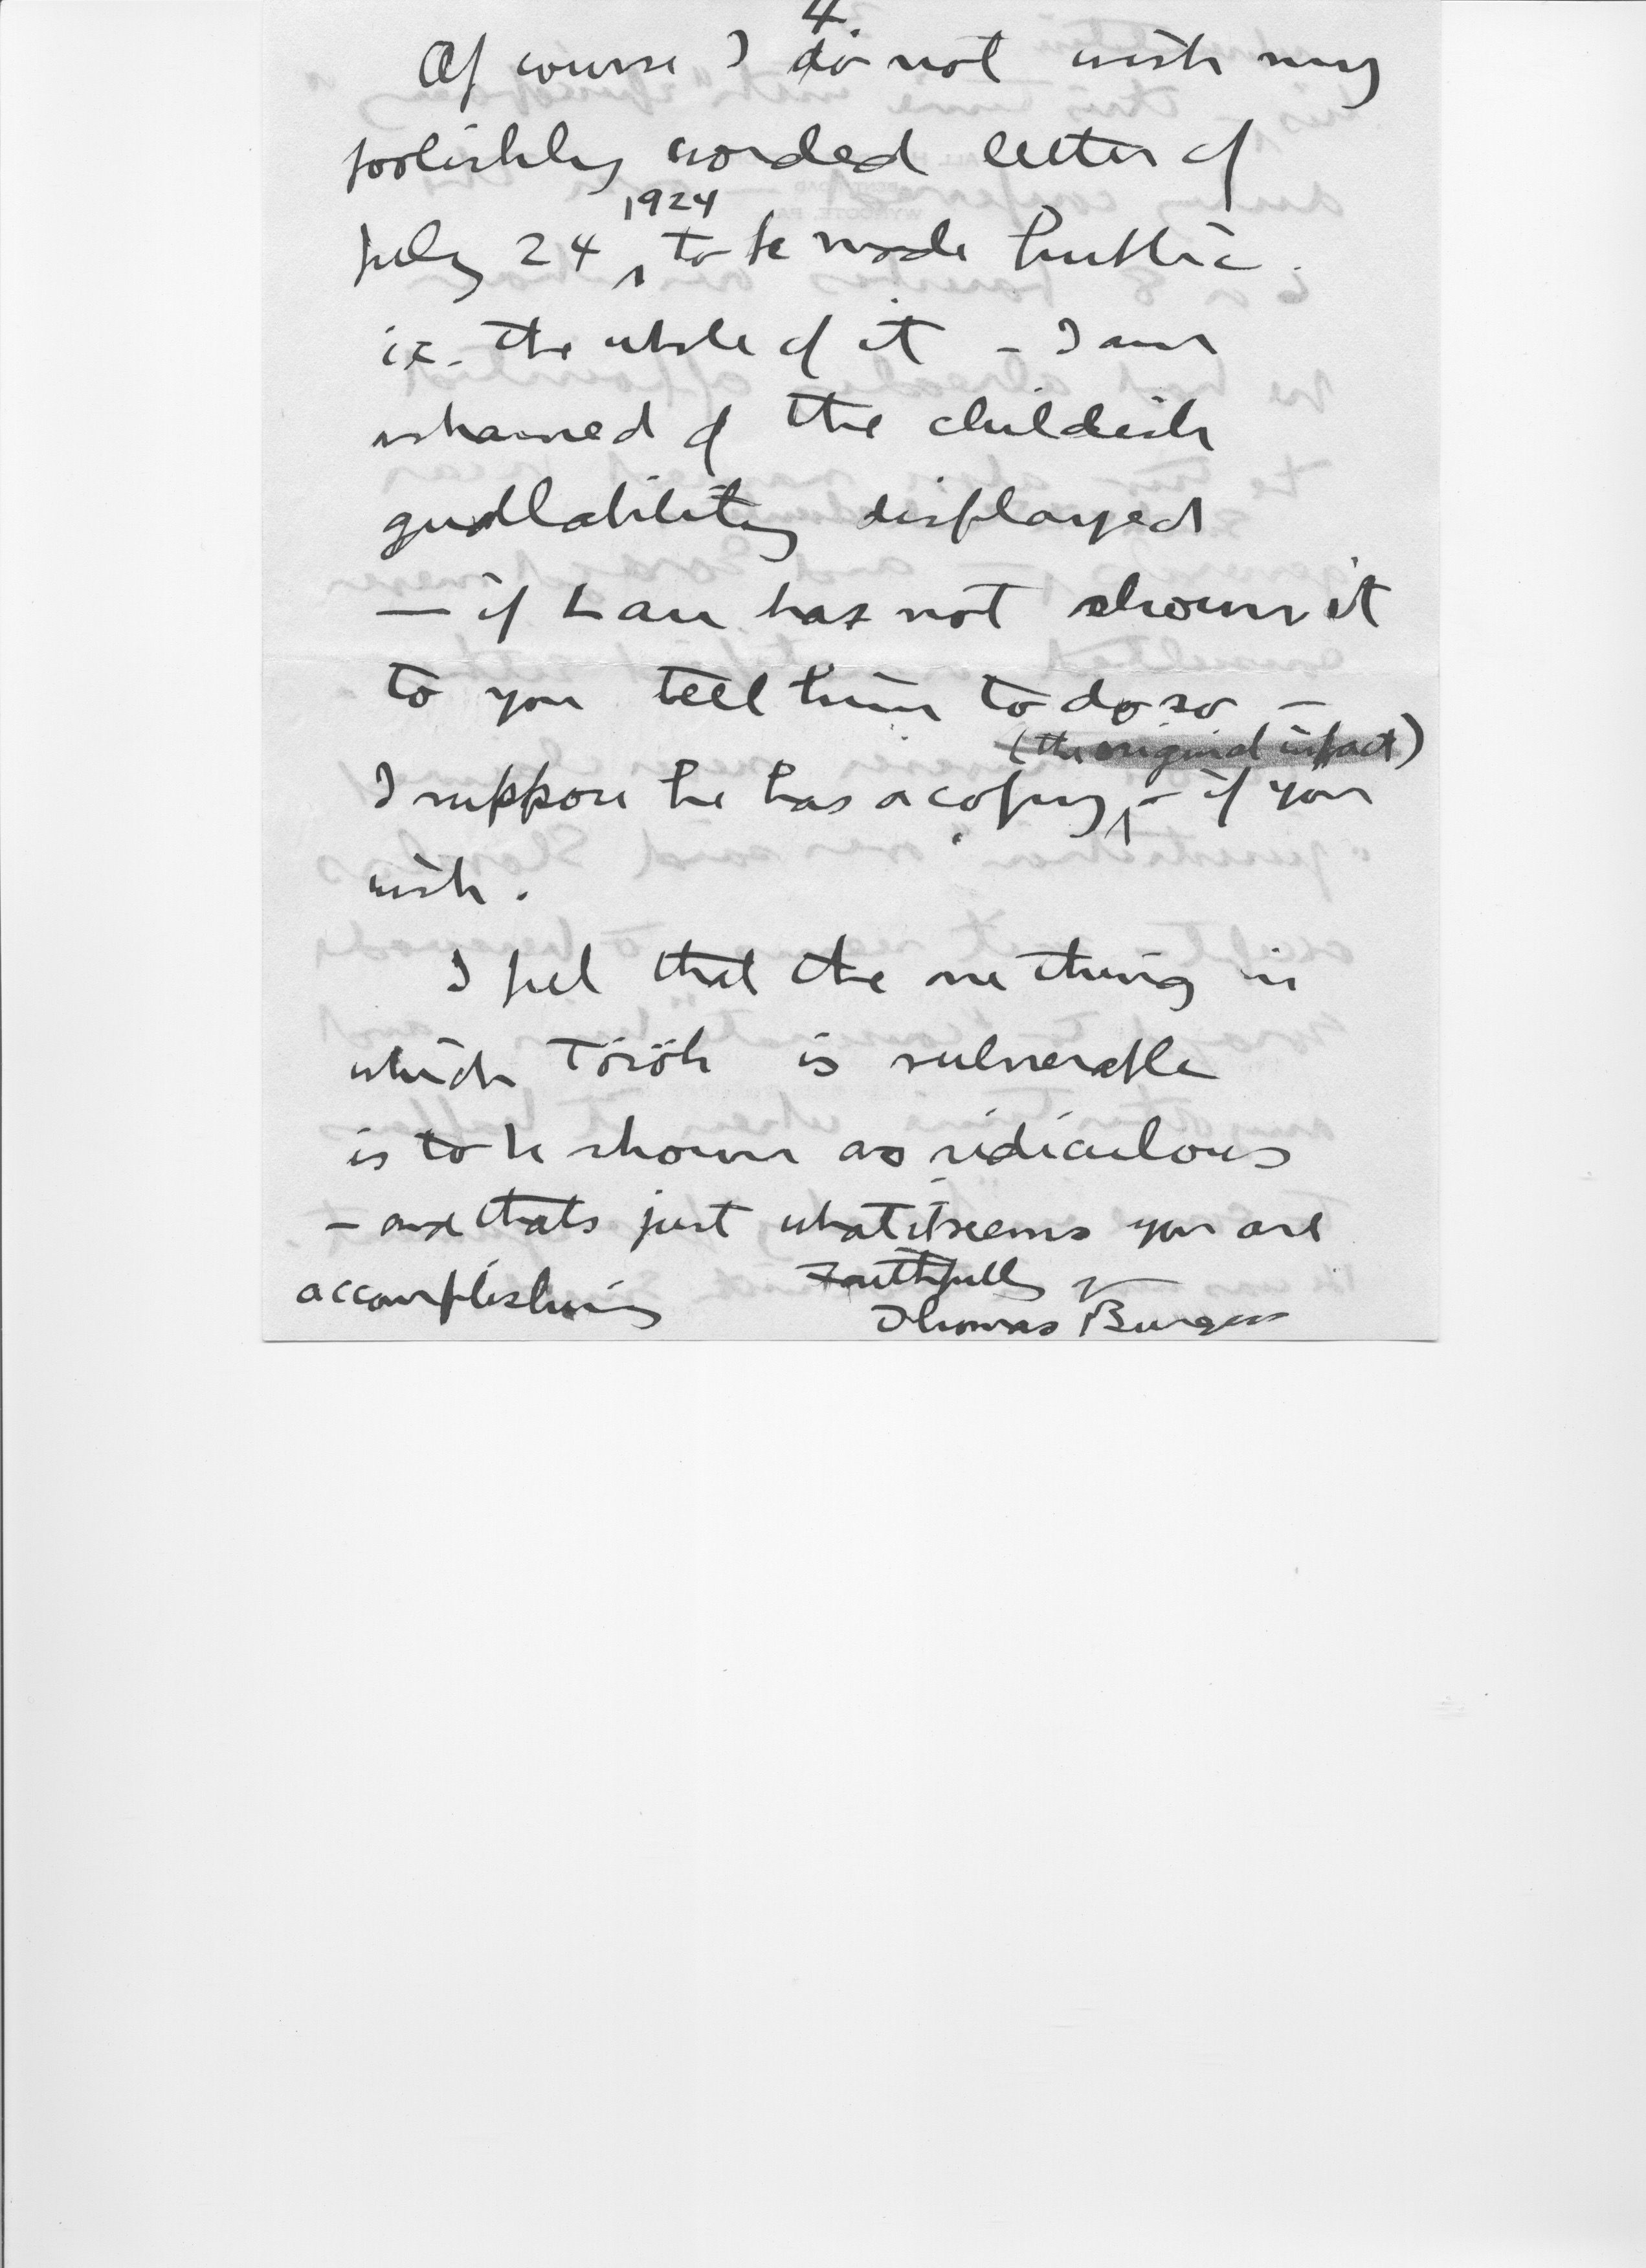 4.
Of course I do not wish my
foolishly worded letter of
1924
July 24 ‸ to be made public.
i.e. the whole of it – I am
ashamed of the childish
gullability displayed
— if Lau has not shown it
to you tell him to do so –
(the original in fact)
I suppose he has a copy ‸ – if you
wish.
I feel that the one thing in
which Török is vulnerable
is to be shown as ridiculous
– and thats just what it seems you are
accomplishing Faithfully yr
Thomas Burgess